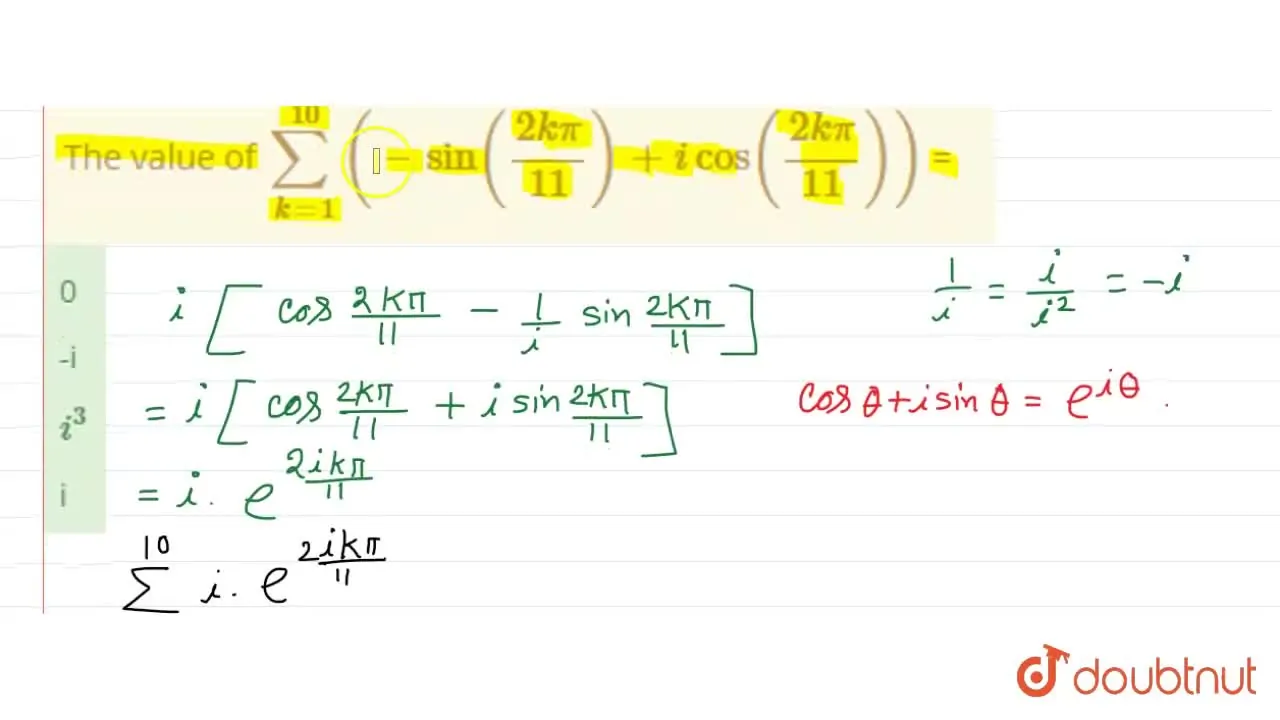 The value of \sum_{k=1}^{10} ( | - sin(2kπ/11) + i cos(2kπ/11)) =
0
-i
i^3
i
i [ cos 2kπ/11 - 1/i sin 2kπ/11 ]
1/i = i/i^2 = -i
= i [ cos 2kπ/11 + i sin 2kπ/11 ]
cos θ + i sin θ = e^{iθ} .
= i . e^{2ikπ/11}
\sum^{10} i . e^{2ikπ/11}
doubtnut